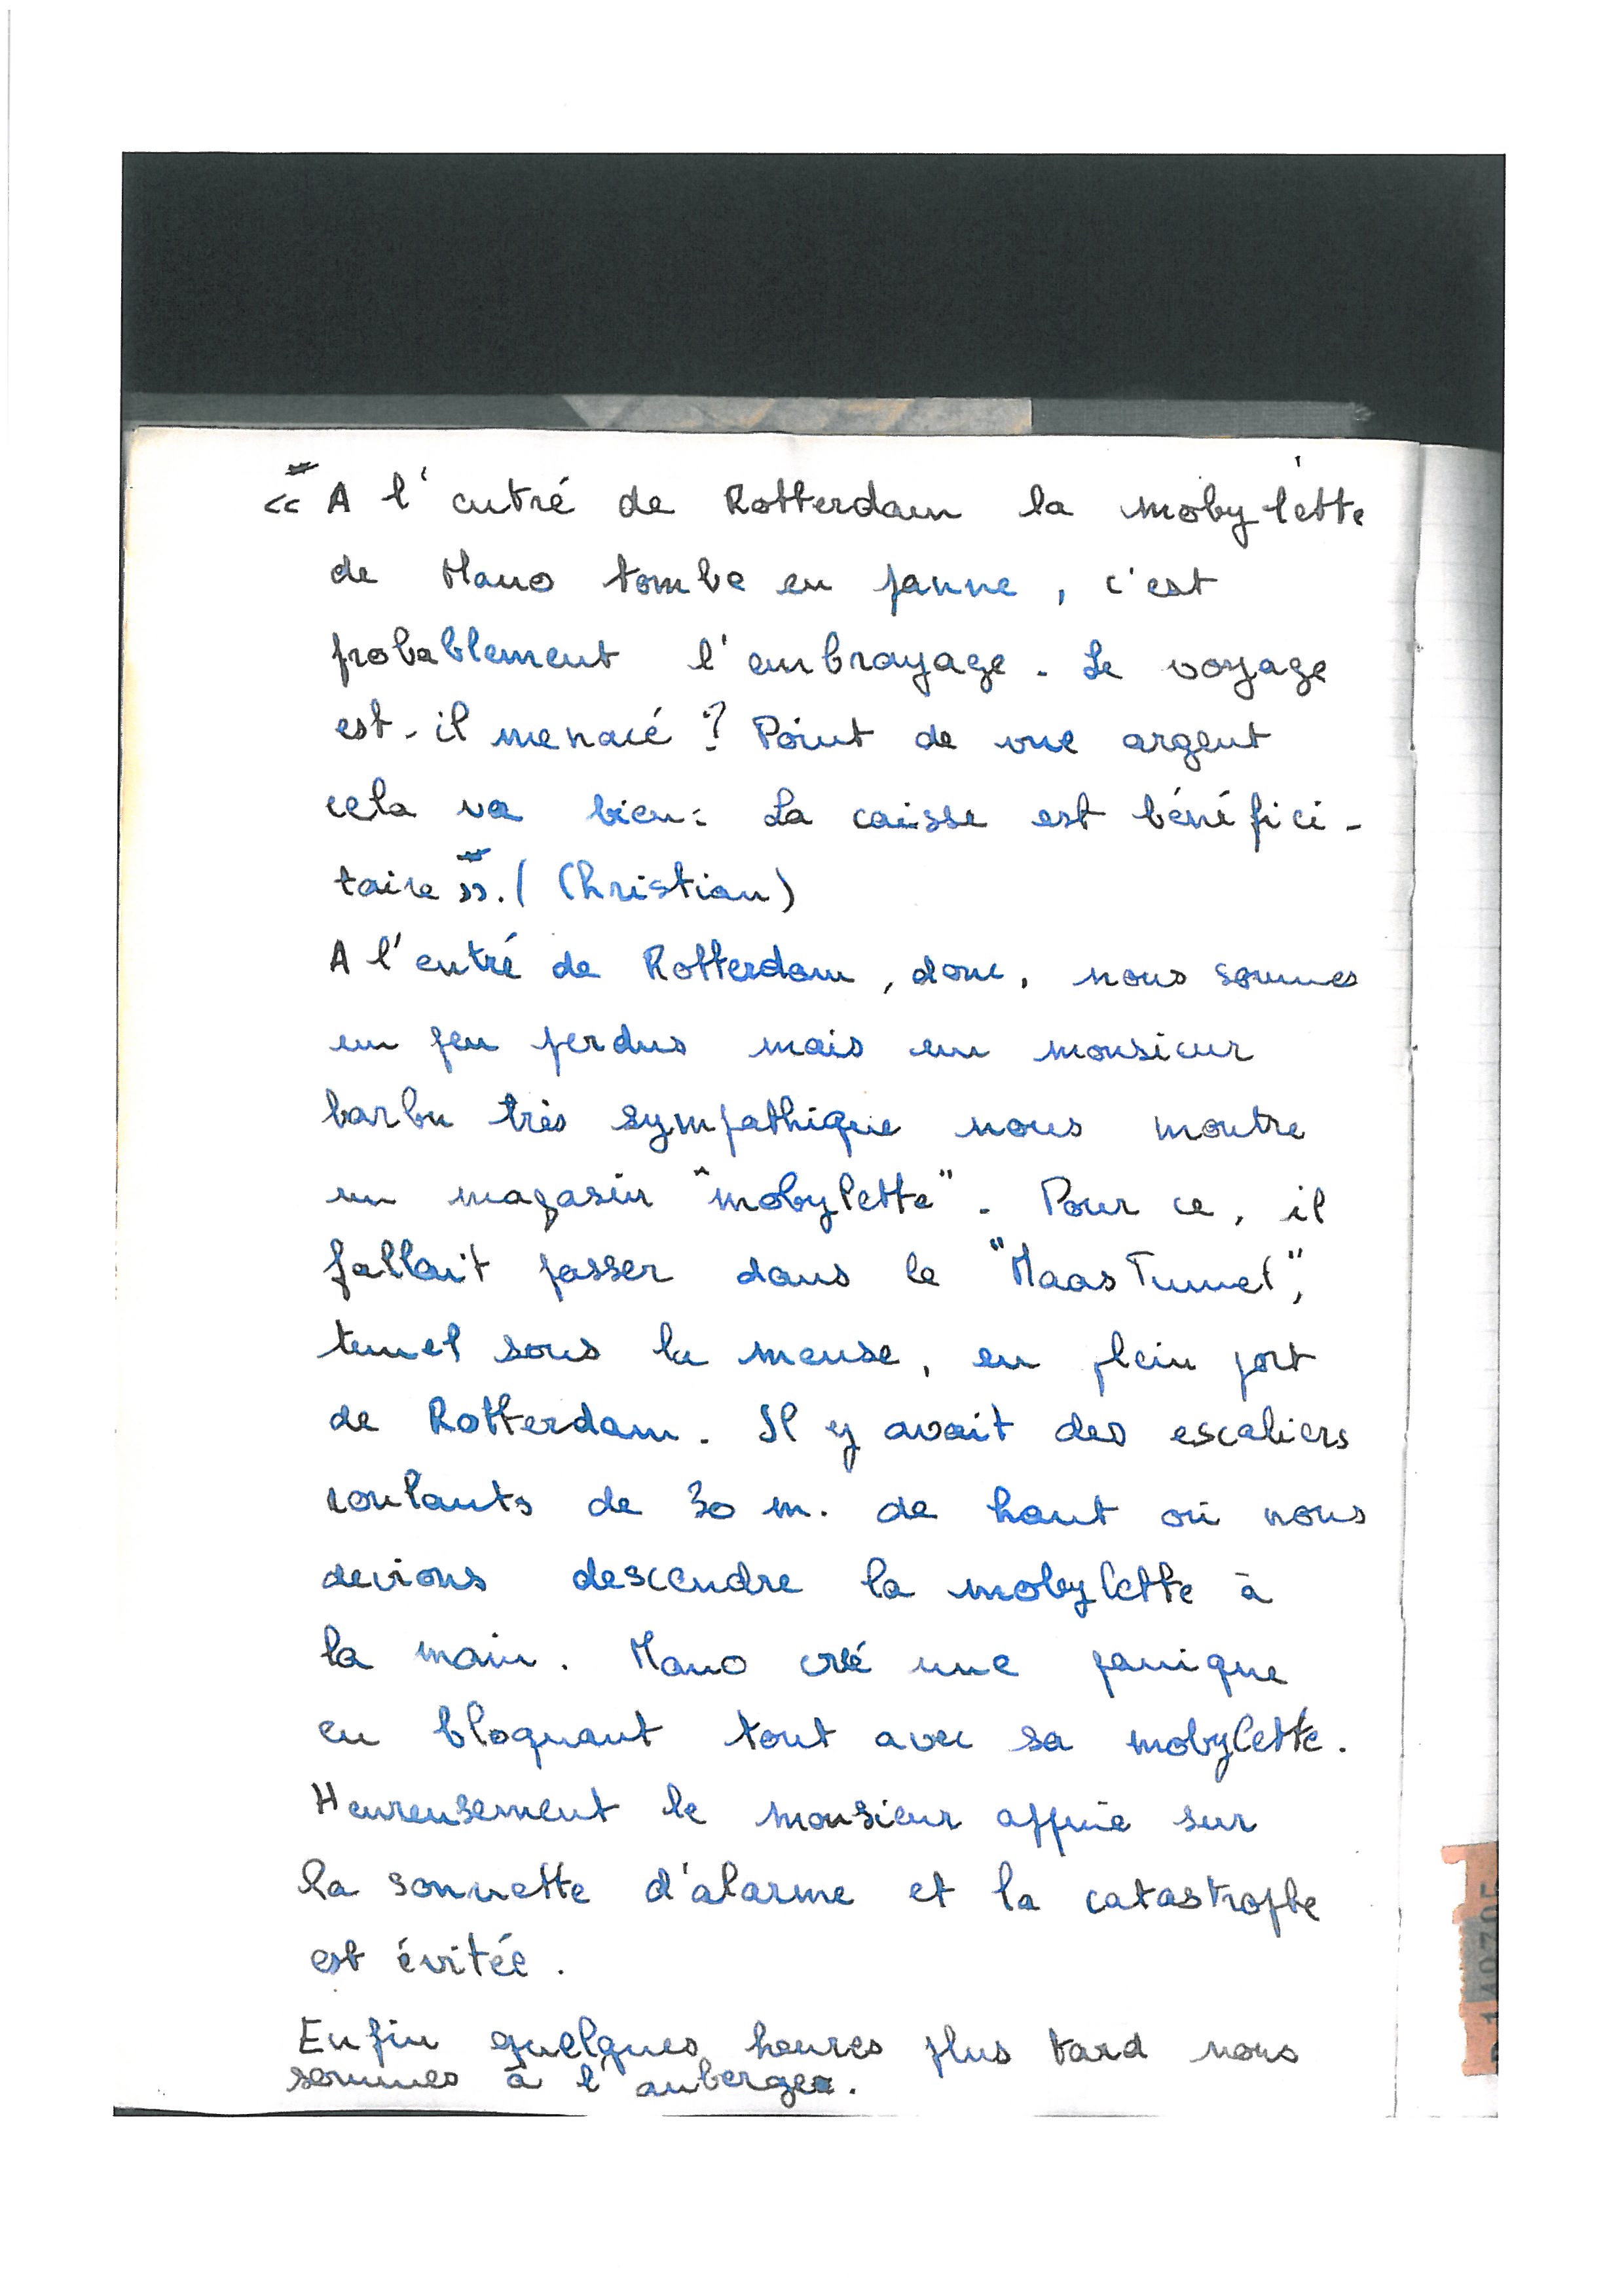 « A l'entré de Rotterdam la mobylette
de Mano tombe en panne, c'est
probablement l'embrayage. Le voyage
est-il menacé ? Point de vue argent
cela va bien : La caisse est bénéfici-
taire ». ( Christian)
A l'entré de Rotterdam, donc, nous sommes
un peu perdus mais un monsieur
barbu très sympathique nous montre
un magasin "mobylette". Pour ce, il
fallait passer dans le "Maas Tunnel",
tunel sous la meuse, en plein port
de Rotterdam. Il y avait des escaliers
roulants de 30 m. de haut où nous
devions descendre la mobylette à
la main. Mano créé une panique
en bloquant tout avec sa mobylette.
Heureusement le monsieur appuie sur
la sonnette d'alarme et la catastrophe
est évitée.
Enfin quelques heures plus tard nous
sommes à l'auberge.